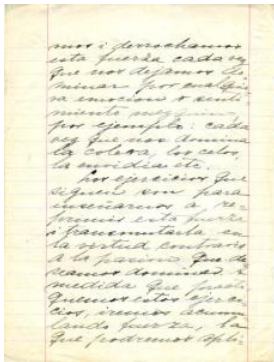 mos i derrochamos
esta fuerza cada vez
que nos dejamos do
minar por cualqui
ra emocion o senti
miento mezquino,
por ejemplo: cada
vez que nos domina
la colera, los celos,
la envidia etc.
Los ejercicios que
siguen son para
enseñarnos a re-
primir esta fuerza
i transmutarla en
la virtud contraria
a la pasion que de
seamos dominar. A
medida que practi
quemos estos ejerci
cios, iremos acumu
lando fuerza, la
que podremos apli-